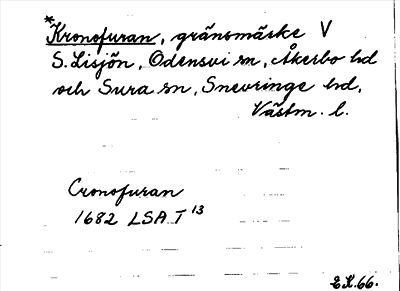 *Kronofuran, gränsmärke V
S. Lisjön, Odensvi sn, Åkerbo hd
och Sura sn, Snevringe hd,
Västm. l.
Cronofuran
1682 LSA T 13
E K. 66.